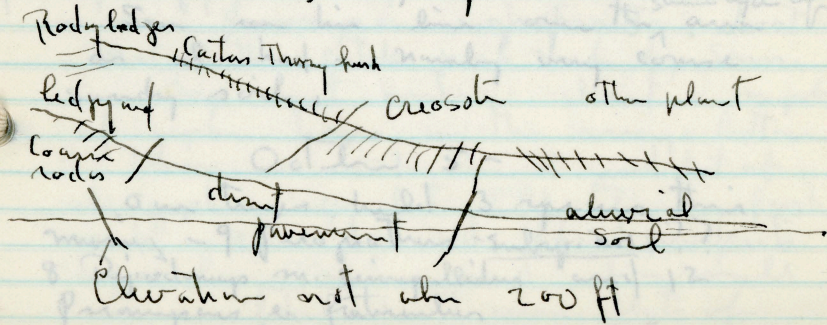 Rocky ledges
Cactus-Thorny bush
creosote other plant
ledgy and
Coarse
rocks
desert
pavement
aluvial
soil
Elevation not over 200 ft